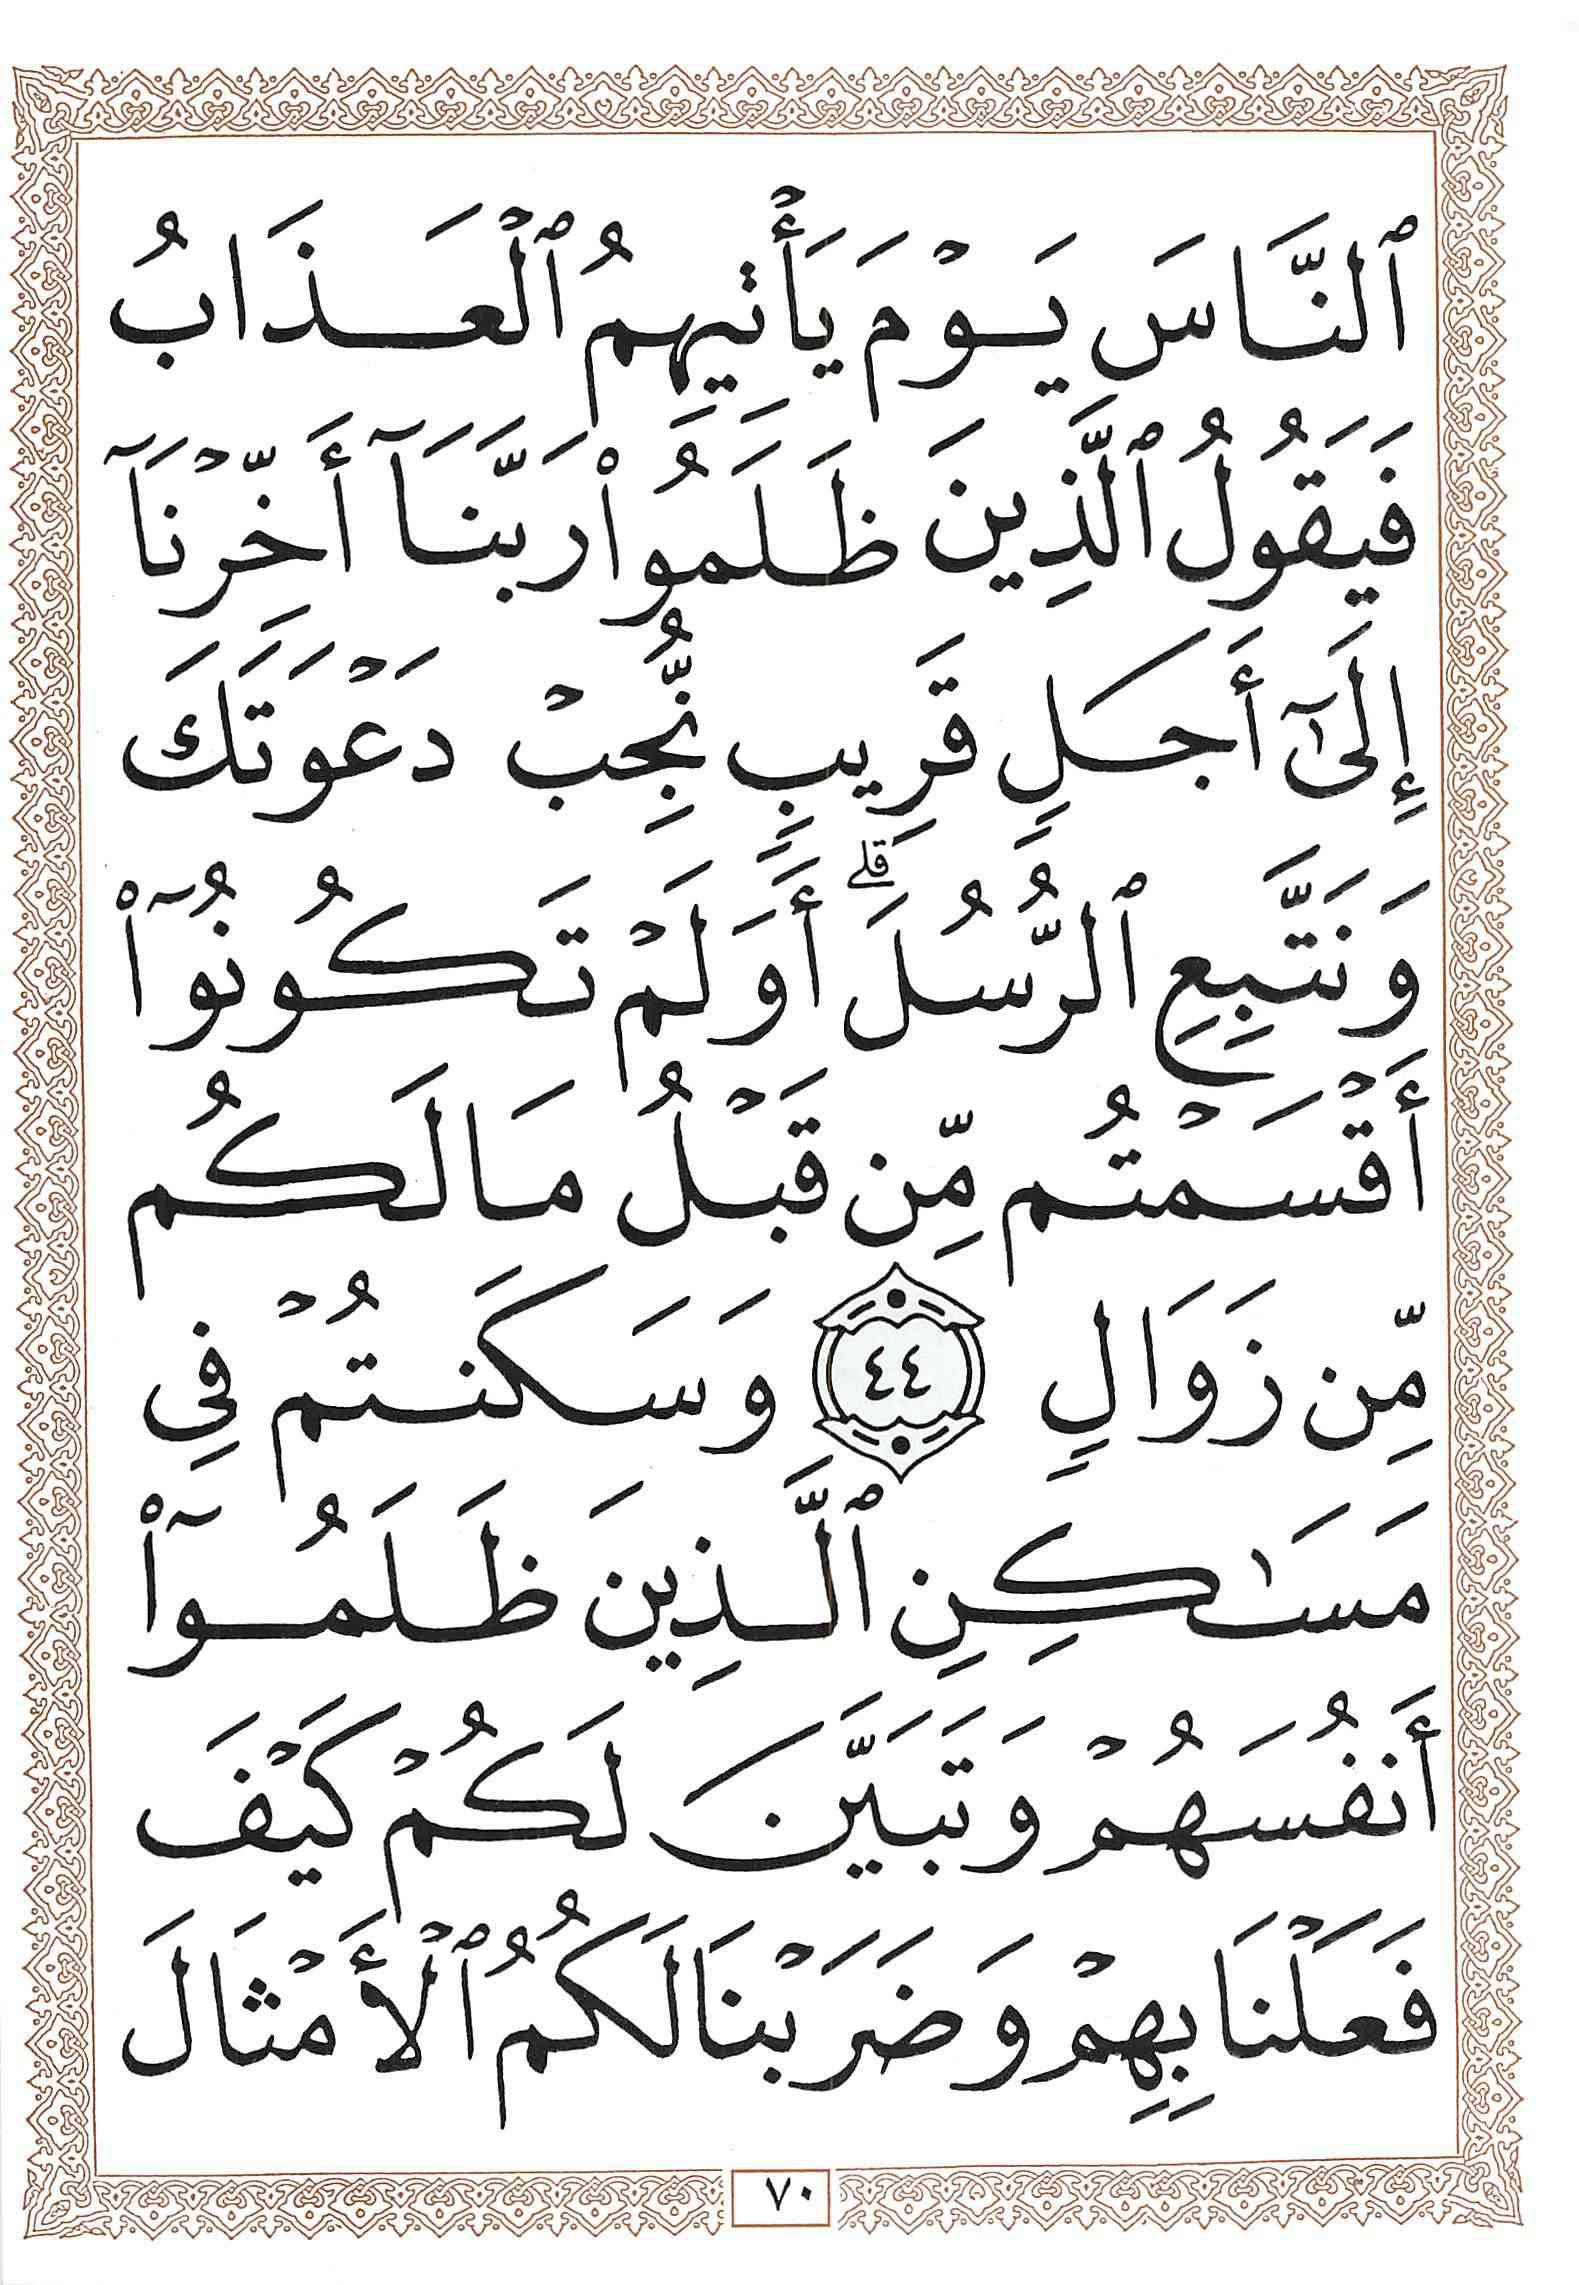 ٱلنَّاسَ يَوْمَ يَأْتِيهِمُ ٱلْعَذَابُ
فَيَقُولُ ٱلَّذِينَ ظَلَمُوا۟ رَبَّنَآ أَخِّرْنَآ
إِلَىٰٓ أَجَلٍ قَرِيبٍ نُّجِبْ دَعْوَتَكَ
وَنَتَّبِعِ ٱلرُّسُلَ ۗ أَوَلَمْ تَكُونُوٓا۟
أَقْسَمْتُم مِّن قَبْلُ مَا لَكُم
مِّن زَوَالٍ ٤٤ وَسَكَنتُمْ فِى
مَسَـٰكِنِ ٱلَّذِينَ ظَلَمُوٓا۟
أَنفُسَهُمْ وَتَبَيَّنَ لَكُمْ كَيْفَ
فَعَلْنَا بِهِمْ وَضَرَبْنَا لَكُمُ ٱلْأَمْثَالَ
٧٠